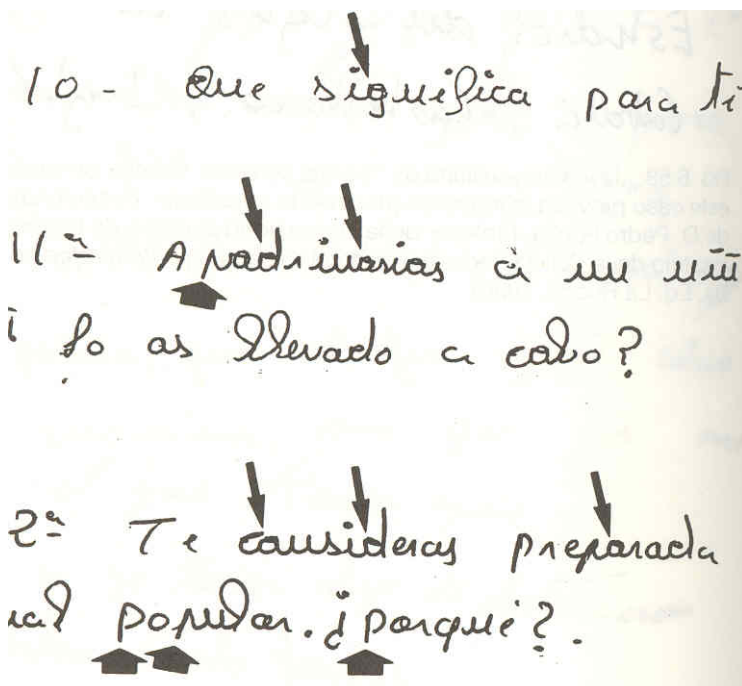 10- Que significa para ti
11ª Apadrinarias a un niñ
lo as llevado a cabo?
2ª Te consideras preparada
popular. ¿porqué?.